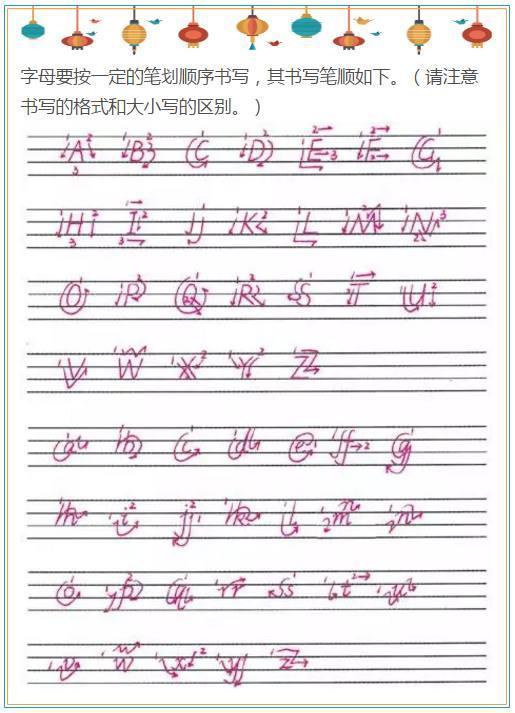 字母要按一定的笔划顺序书写，其书写笔顺如下。（请注意
书写的格式和大小写的区别。）
A B C D E F G
H I J K L M N
O P Q R S T U
V W X Y Z
a b c d e f g
h i j k l m n
o p q r s t u
v w x y z